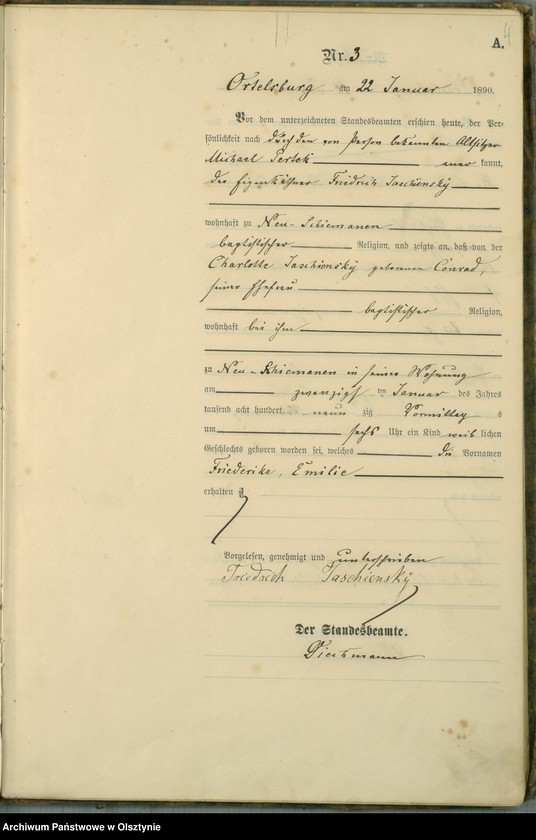 A.
Nr. 3
Ortelsburg am 22 Januar 1890.
Vor dem unterzeichneten Standesbeamten erschien heute, der Per-
sönlichkeit nach durch den von Person bekannten Altsitzer
Michael aner kannt,
der Eigenkäthner Friedrich Jaschiensky
wohnhaft zu Neu-Schiemanen
baptistischer Religion, und zeigte an, daß von der
Charlotte Jaschionsky geborenen Conrad,
seiner Ehefrau
baptistischer Religion,
wohnhaft bei ihm
zu Neu-Schiemanen in seiner Wohnung
am zwanzigsten Januar des Jahres
tausend acht hundert neun zig Vormittag s
um sechs Uhr ein Kind weib lichen
Geschlechts geboren worden sei, welches die Vornamen
Friederike, Emilie
erhalten
Vorgelesen, genehmigt und unterschrieben
Friedrich Jaschiensky
Der Standesbeamte.
Archiwum Państwowe w Olsztynie